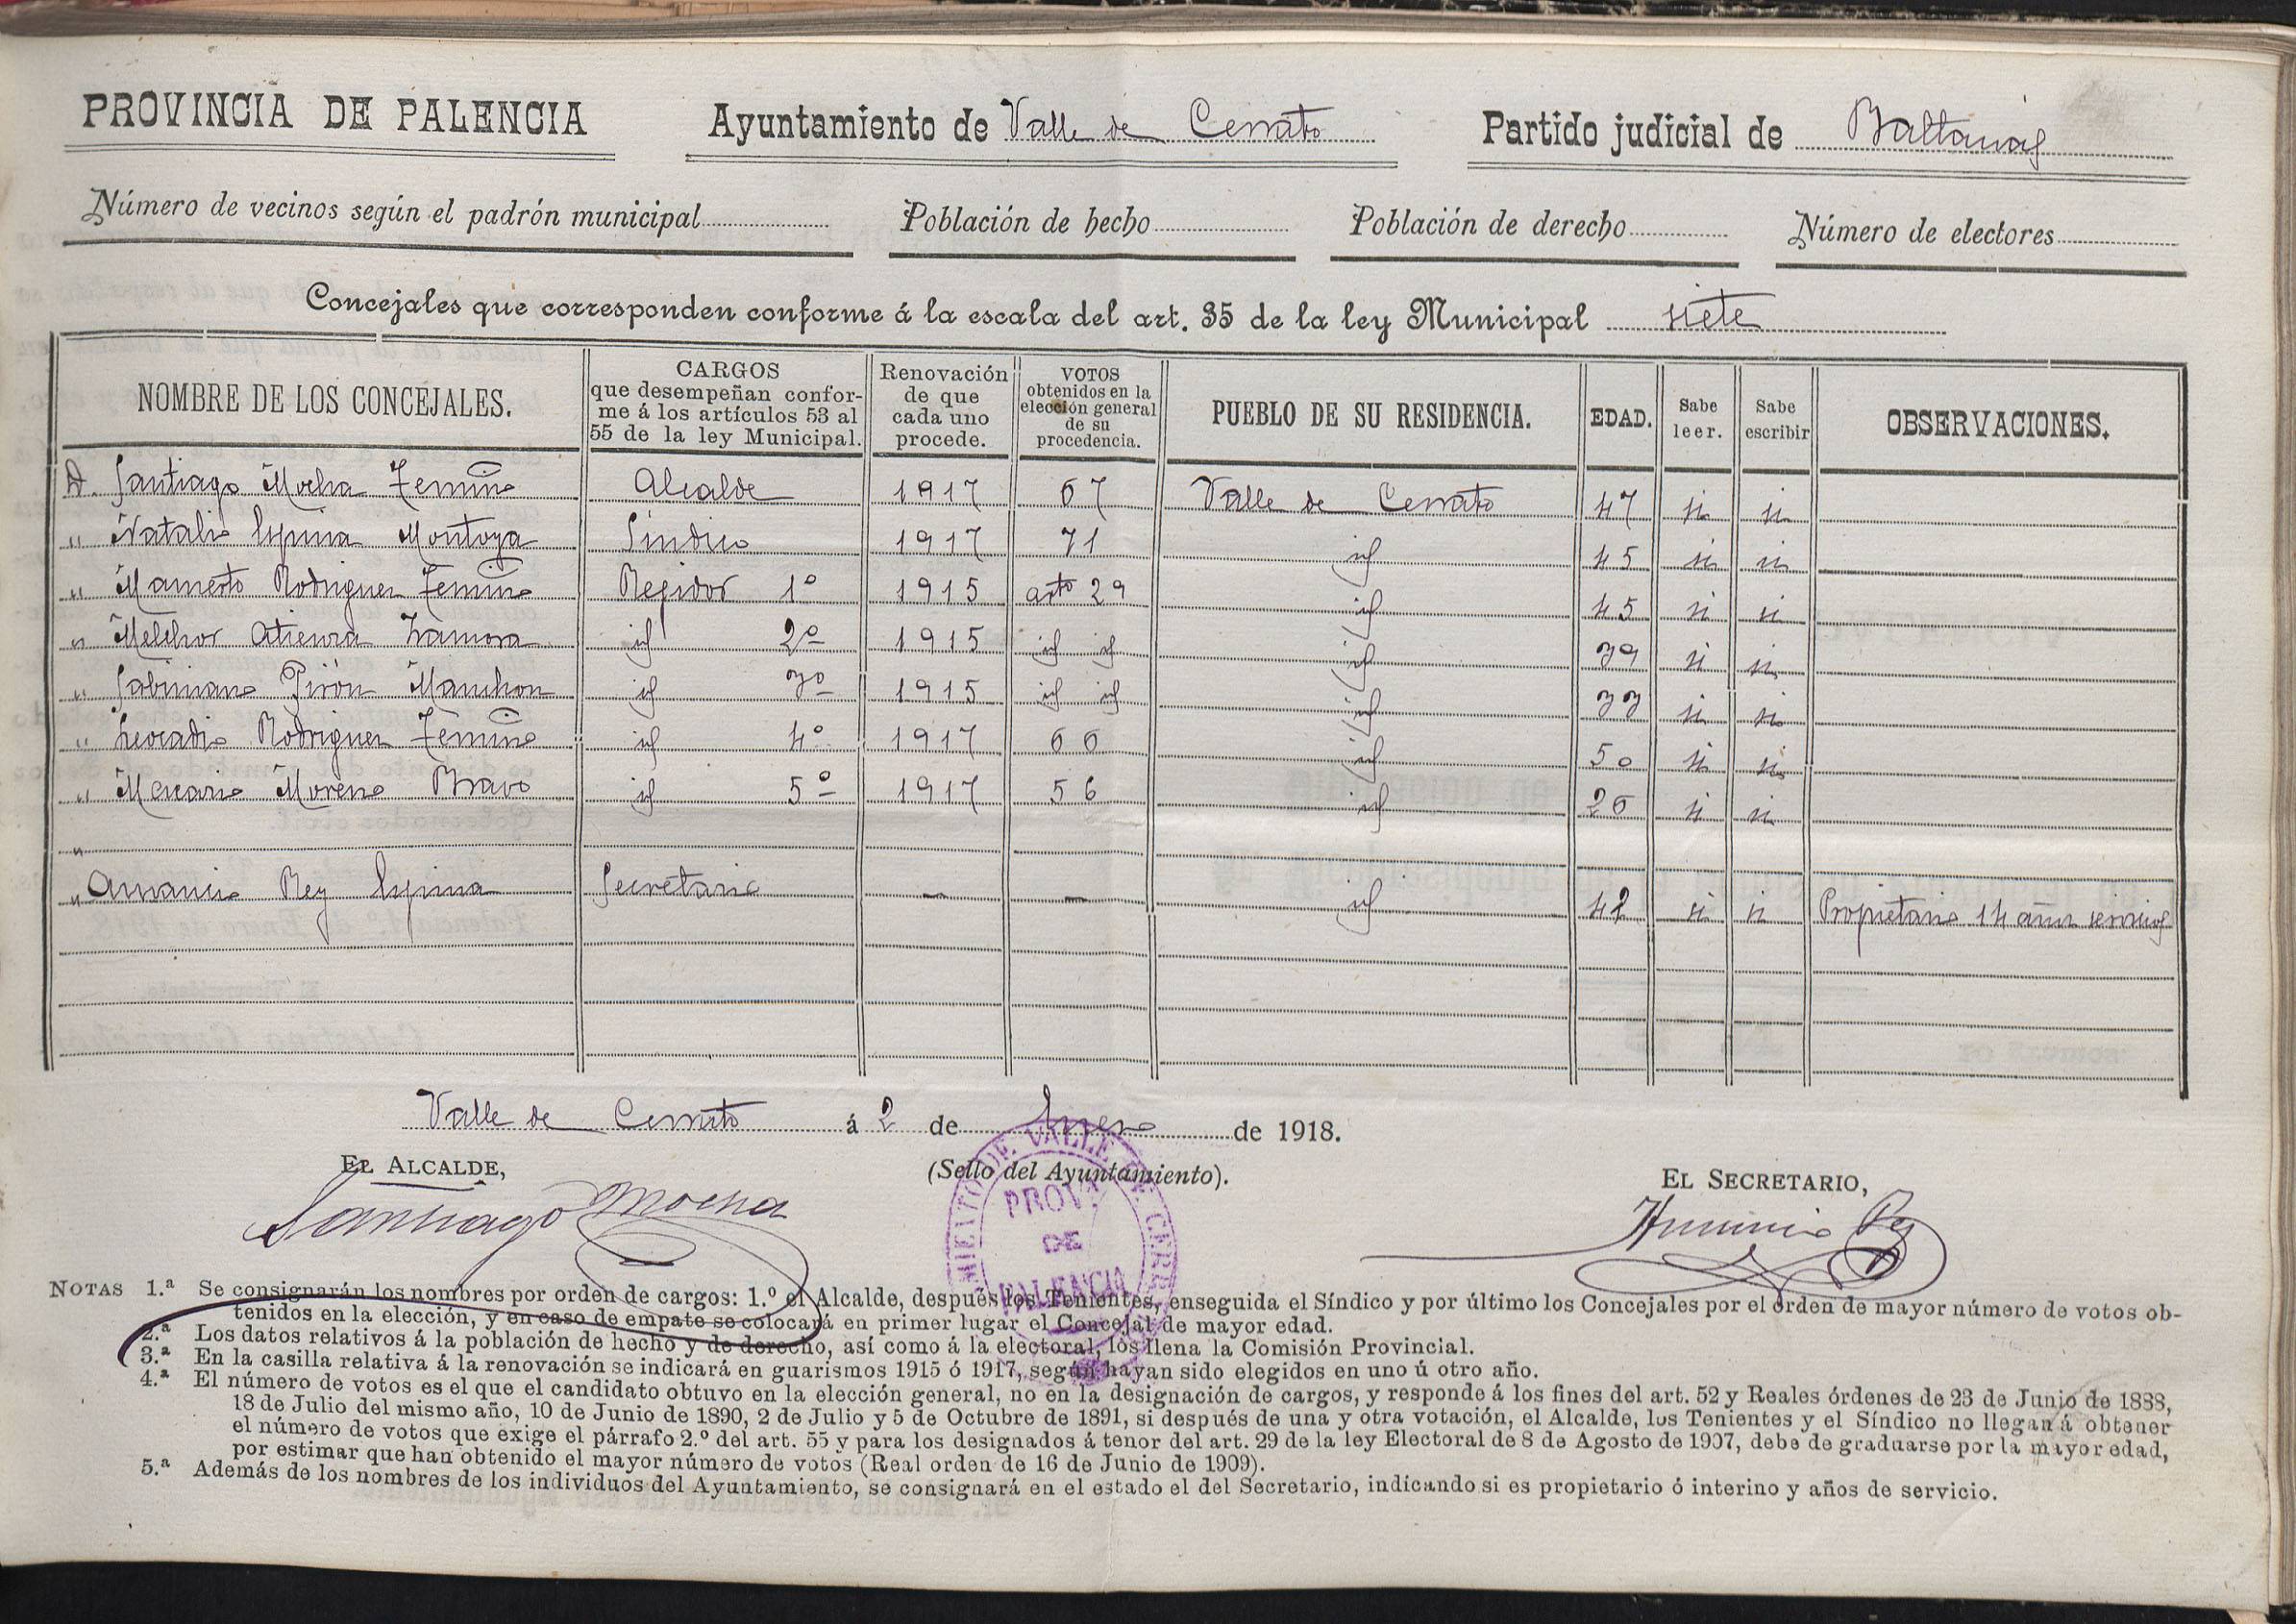 PROVINCIA DE PALENCIA Ayuntamiento de Valle de Cerrato Partido judicial de Baltanás
Número de vecinos según el padrón municipal Población de hecho Población de derecho Número de electores
Concejales que corresponden conforme á la escala del art. 35 de la ley Municipal siete
NOMBRE DE LOS CONCEJALES. CARGOS que desempeñan conforme á los artículos 53 al 55 de la ley Municipal. Renovación de que cada uno procede. VOTOS obtenidos en la elección general de su procedencia. PUEBLO DE SU RESIDENCIA. EDAD. Sabe leer. Sabe escribir OBSERVACIONES.
D. Santiago Mocha Temiño Alcalde 1917 67 Valle de Cerrato 47 si si
" Natalio Espina Montoya Síndico 1917 71 id 45 si si
" Mamerto Rodriguez Temiño Regidor 1º 1915 artº 29 id 45 si si
" Melchor Atienza Zamora id 2º 1915 id id id 39 si si
" Sabiniano Pirón Manchon id 3º 1915 id id id 33 si si
" Leocadio Rodriguez Temiño id 4º 1917 66 id 50 si si
" Macario Moreno Bravo id 5º 1917 56 id 26 si si
"
" Amancio Rey Espina Secretario — — id 42 si si Propietario 14 años servicios
Valle de Cerrato á 2 de Enero de 1918.
EL ALCALDE, (Sello del Ayuntamiento). EL SECRETARIO,
Santiago Mocha Amancio Rey
DE VALLE DE CERR
PROVª
DE
PALENCIA
NOTAS 1.ª Se consignarán los nombres por orden de cargos: 1.º el Alcalde, después los Tenientes, enseguida el Síndico y por último los Concejales por el orden de mayor número de votos ob-
tenidos en la elección, y en caso de empate se colocará en primer lugar el Concejal de mayor edad.
2.ª Los datos relativos á la población de hecho y de derecho, así como á la electoral, los llena la Comisión Provincial.
3.ª En la casilla relativa á la renovación se indicará en guarismos 1915 ó 1917, según hayan sido elegidos en uno ú otro año.
4.ª El número de votos es el que el candidato obtuvo en la elección general, no en la designación de cargos, y responde á los fines del art. 52 y Reales órdenes de 23 de Junio de 1888,
18 de Julio del mismo año, 10 de Junio de 1890, 2 de Julio y 5 de Octubre de 1891, si después de una y otra votación, el Alcalde, los Tenientes y el Síndico no llegan á obtener
el número de votos que exige el párrafo 2.º del art. 55 y para los designados á tenor del art. 29 de la ley Electoral de 8 de Agosto de 1907, debe de graduarse por la mayor edad,
por estimar que han obtenido el mayor número de votos (Real orden de 16 de Junio de 1909).
5.ª Además de los nombres de los individuos del Ayuntamiento, se consignará en el estado el del Secretario, indicando si es propietario ó interino y años de servicio.